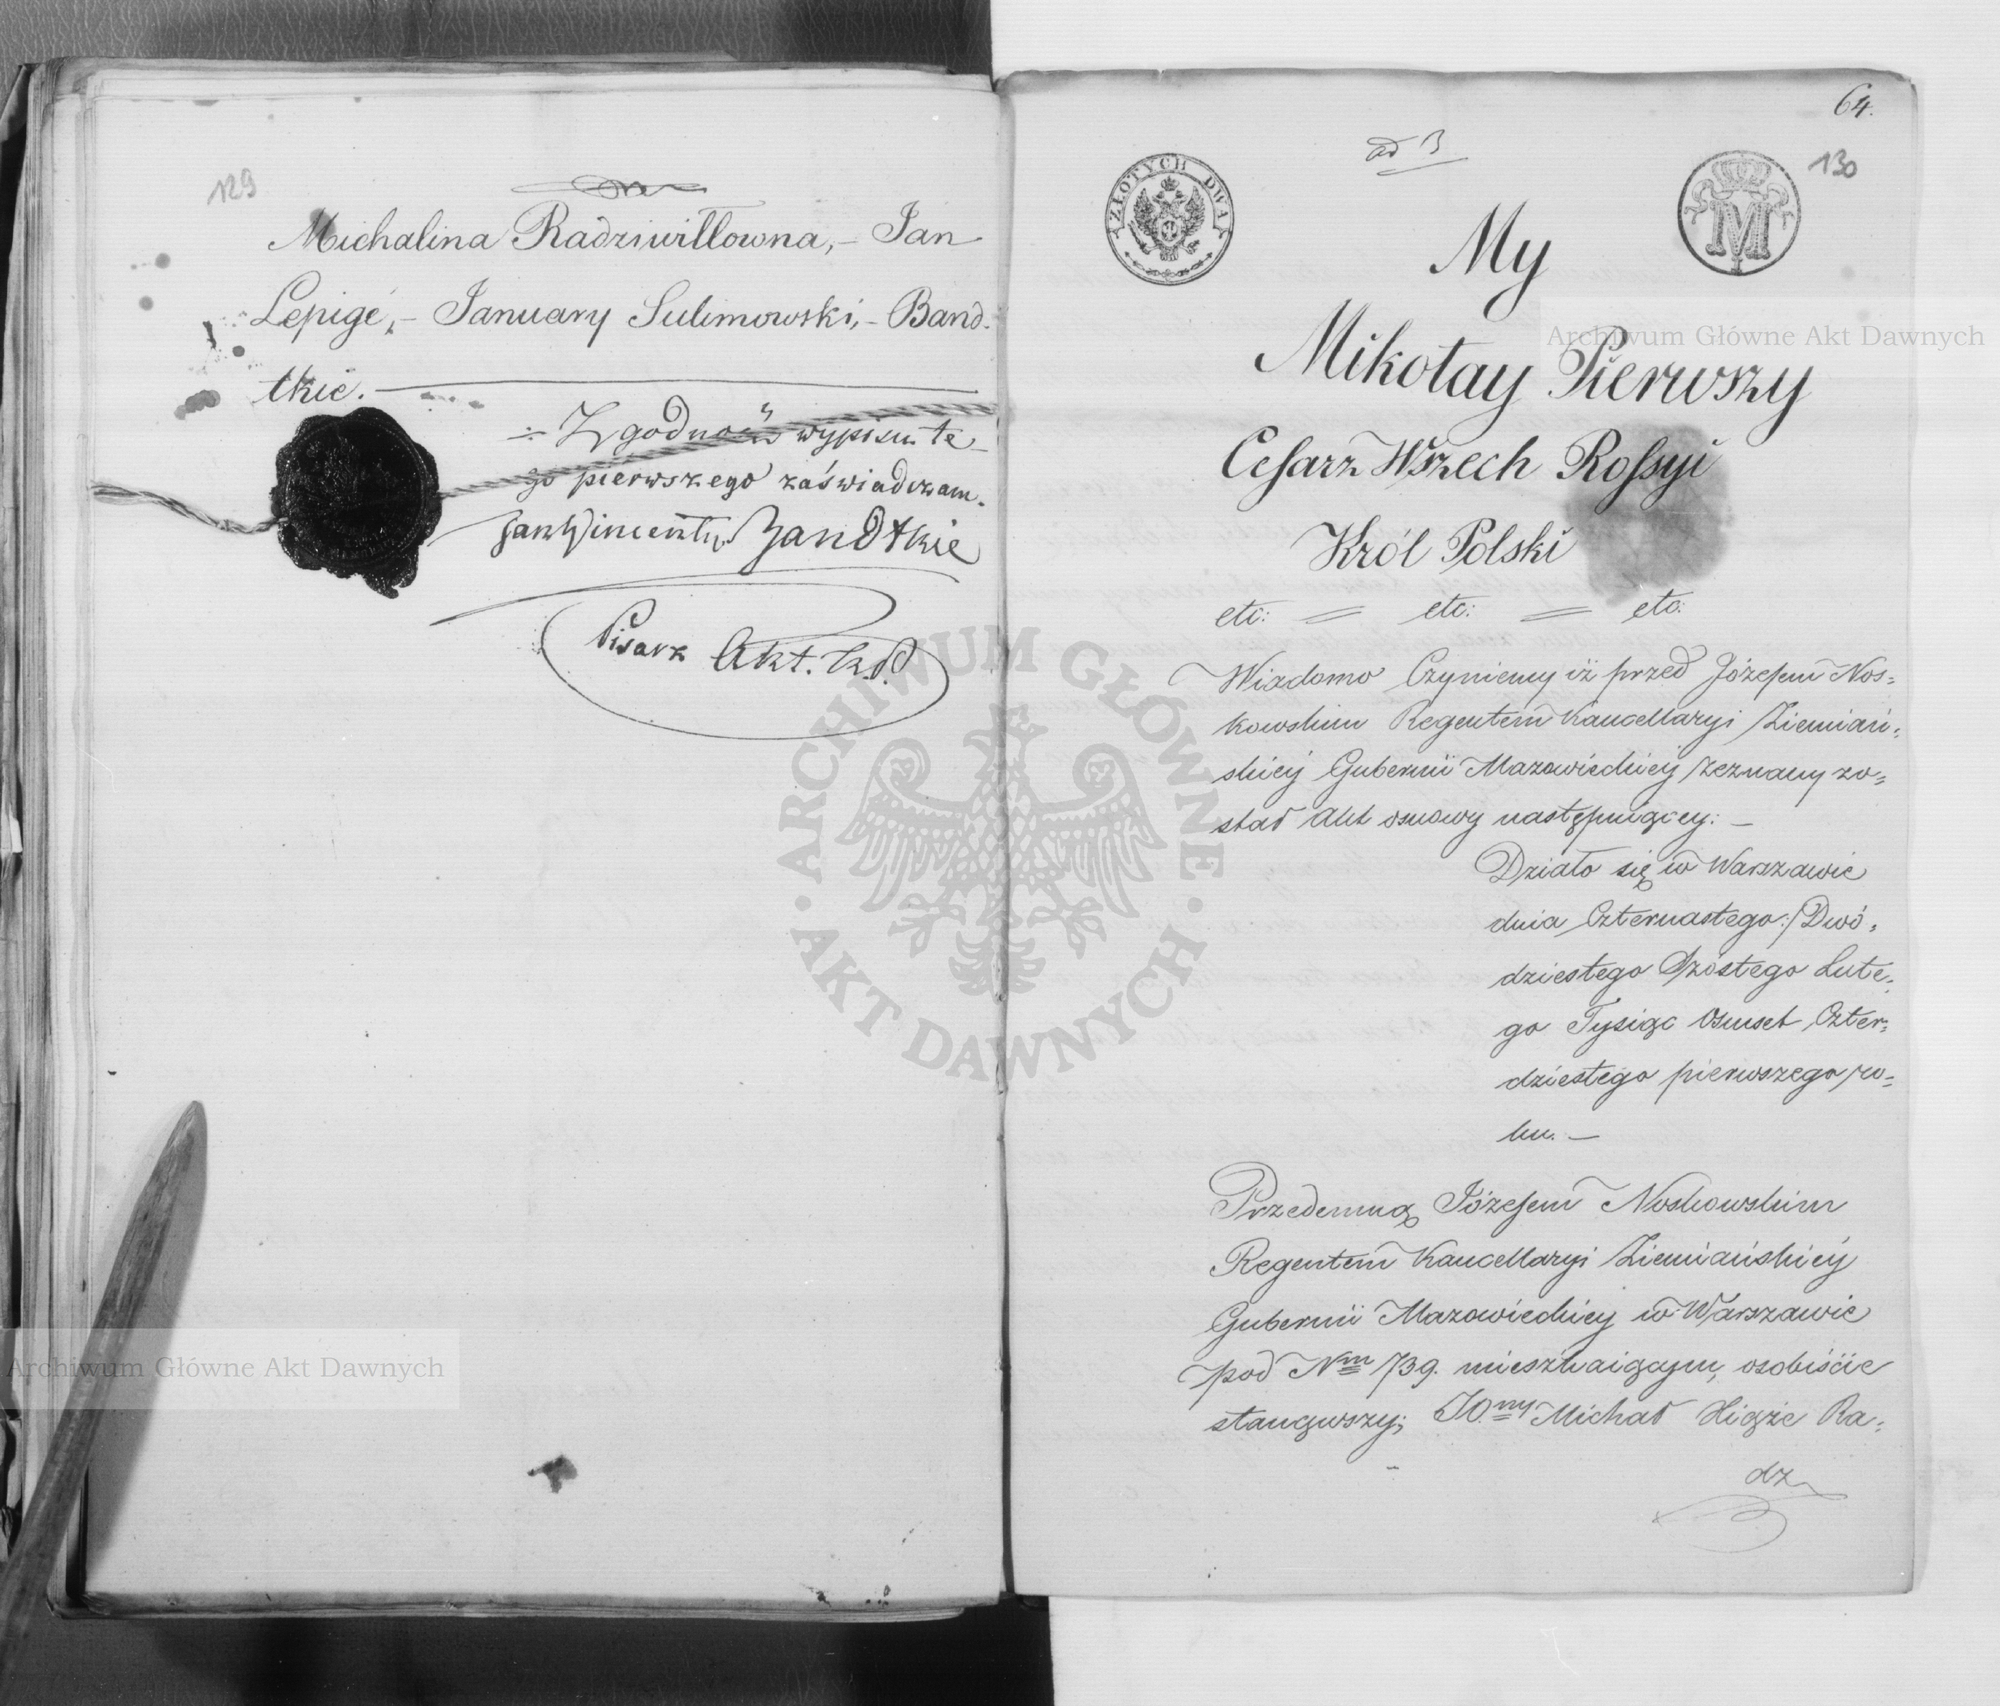 129
Michalina Radziwiłłowna, – Jan
Lepigé, – January Sulimowski, – Band-
tkie. –
Zgodność wypisu te-
go pierwszego zaświadczam.
Jan Wincenty Bandtkie
Pisarz Akt.
64.
ad B
130
ZŁOTYCH DWA
M
My
Mikołay Pierwszy
Cesarz Wszech Rossyi
Król Polski
etc: = etc: = etc:
Wiadomo Czyniemy iż przed Józefem Nos=
kowskim Regentem Kancellaryi Ziemiań=
skiéy Gubernii Mazowieckiéy zeznany zo=
stał Akt osnowy następuiącéy: –
Działo się w Warszawie
dnia Czternastego :/ Dwó=
dziestego Szóstego Lute=
go Tysiąc Osmset Czter=
dziestego pierwszego ro=
ku. –
Przedemną Józefem Noskowskim
Regentem Kancellaryi Ziemiańskiéy
Gubernii Mazowieckiéy w Warszawie
pod Nrm 739. mieszkaiącym, osobiście
stanąwszy; JO.ny Michał Xiąże Ra=
dz
Archiwum Główne Akt Dawnych
Archiwum Główne Akt Dawnych
ARCHIWUM GŁÓWNE · AKT DAWNYCH ·